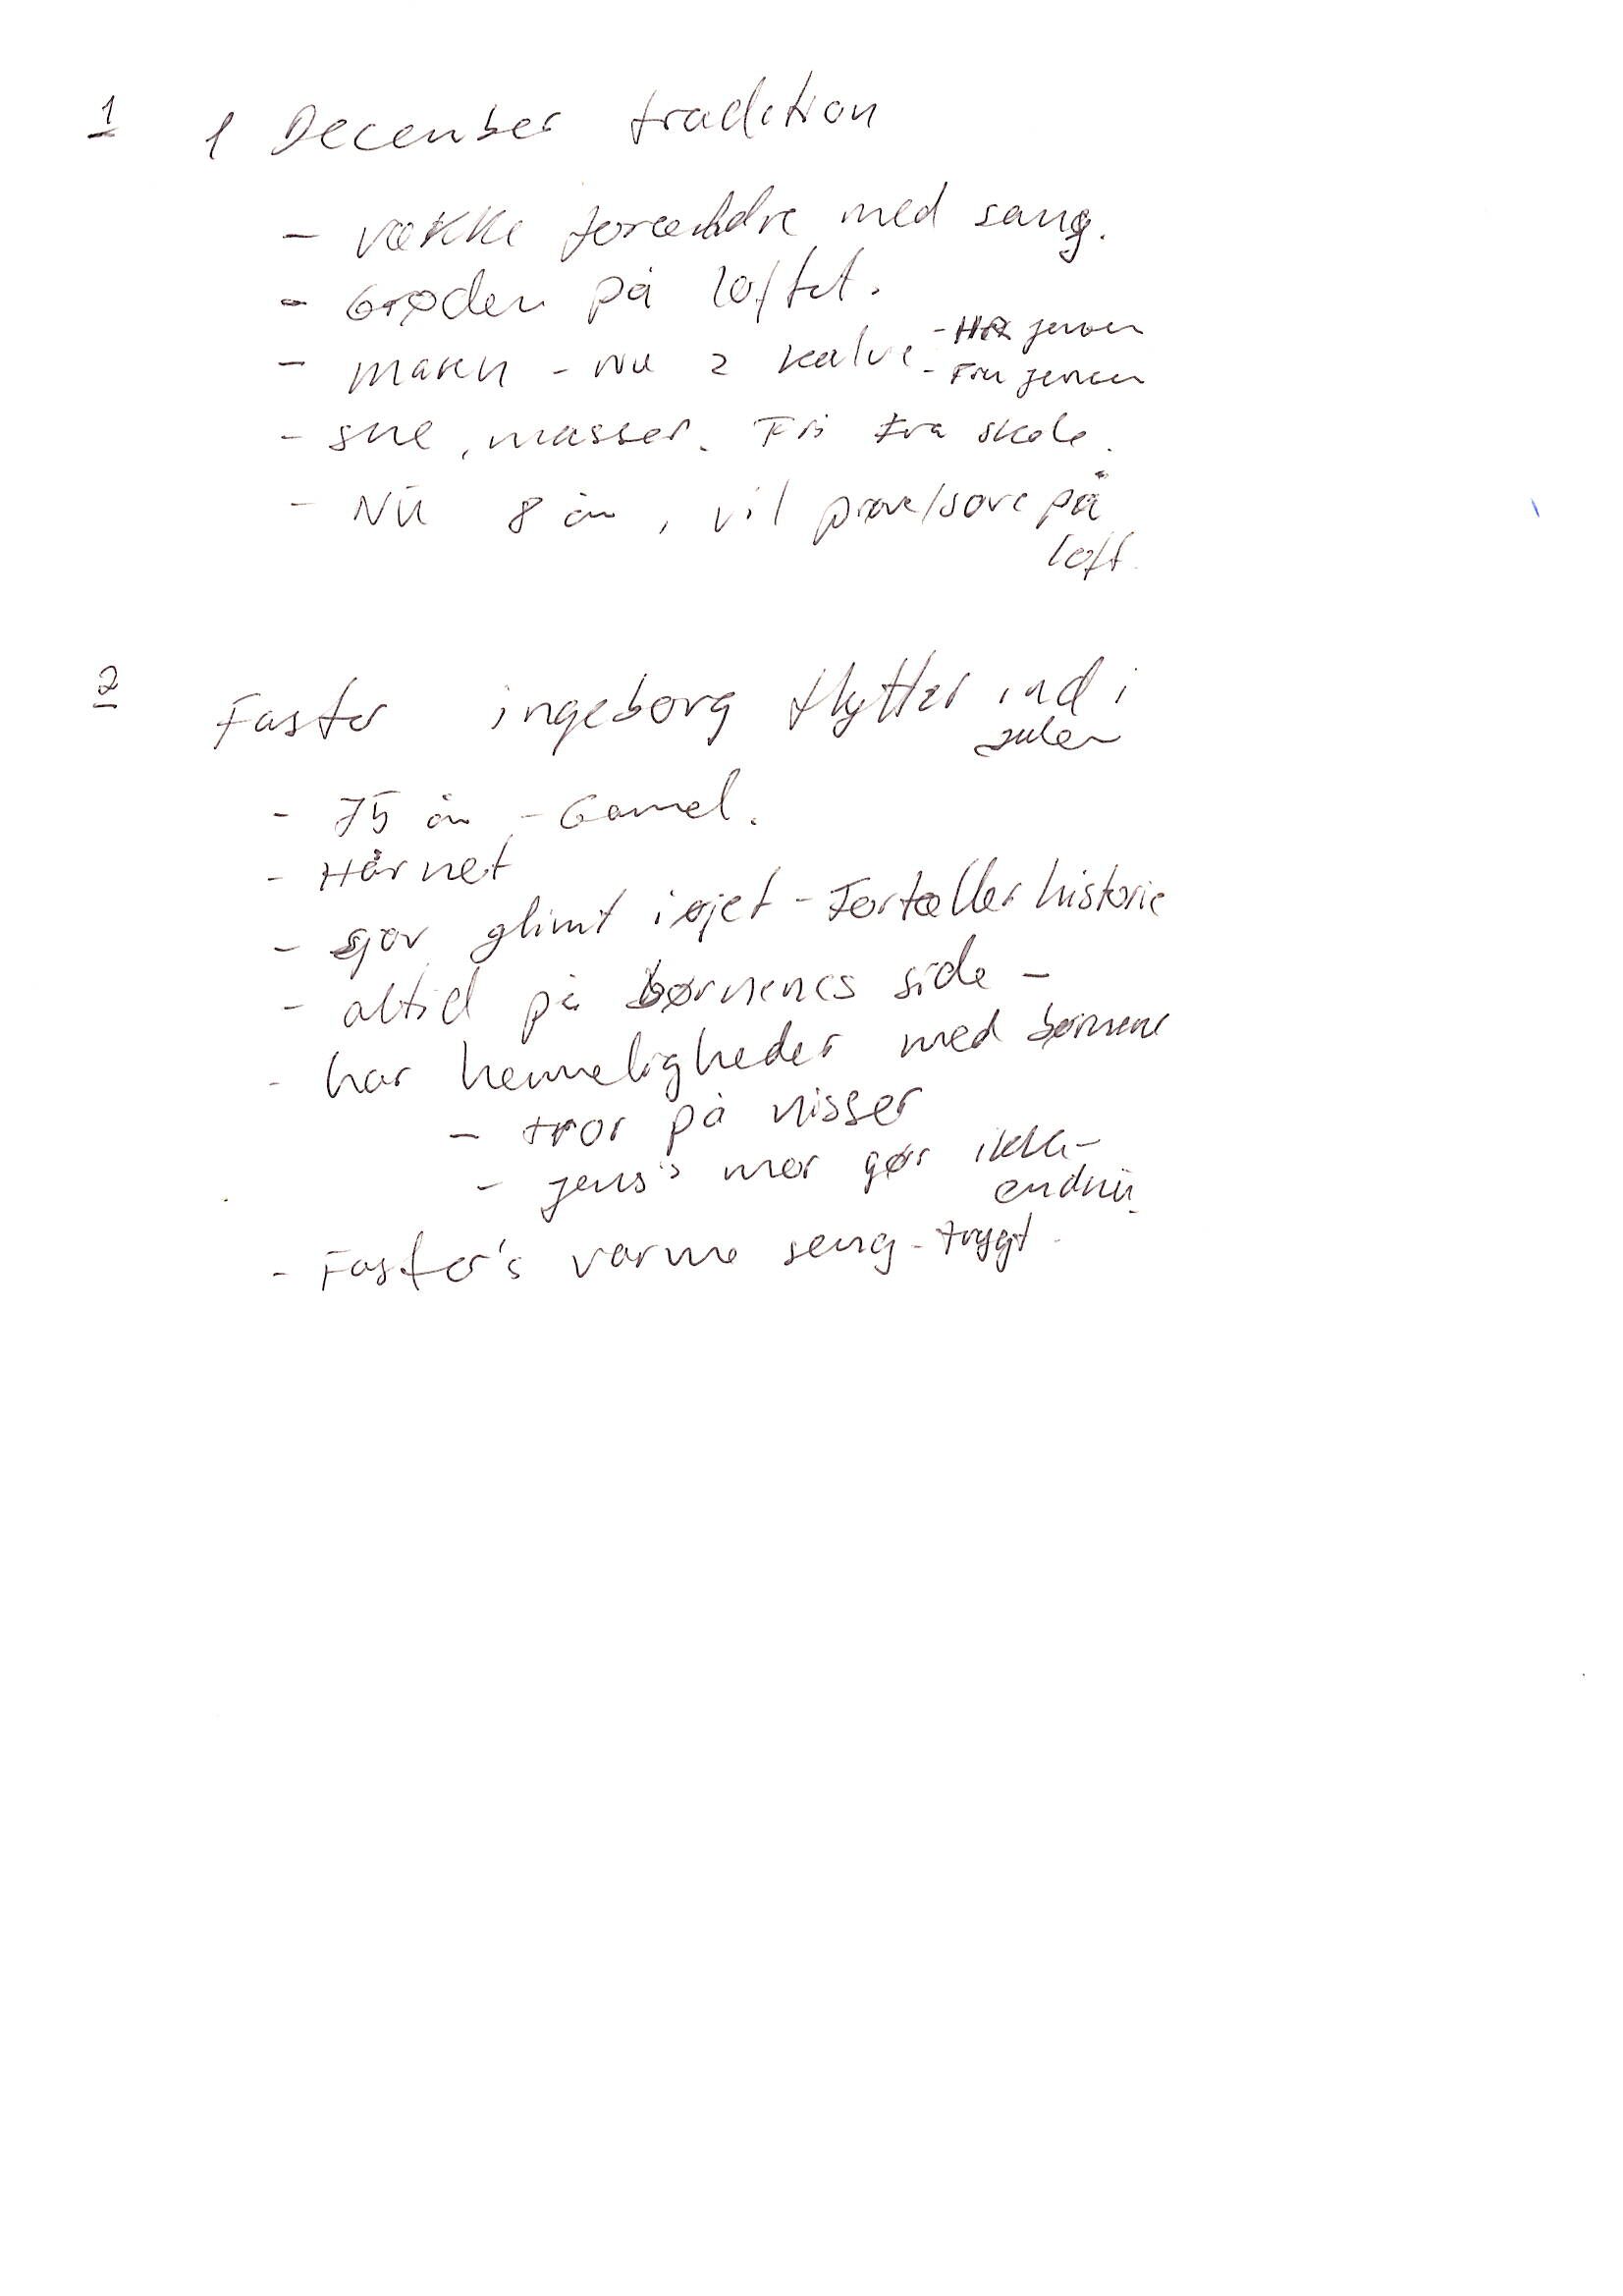 1 1 December tradition
- vække forældre med sang.
- Grøden på loftet.
- maren - nu 2 kalve - HR jensen
- Fru jensen
- sne, masser. Fri Fra skole.
- NU 8 år, vil prøve/sove på
loft.
2 Faster ingeborg flytter ind i
julen
- 75 år - Gamel.
- Hår net
- sjov glimt i øjet - Fortæller historie
- altid på børnenes side -
- har hemmeligheder med børnene
- tror på nisser
- jens's mor gør ikke -
endnu.
- Faster's varme seng - trygt.